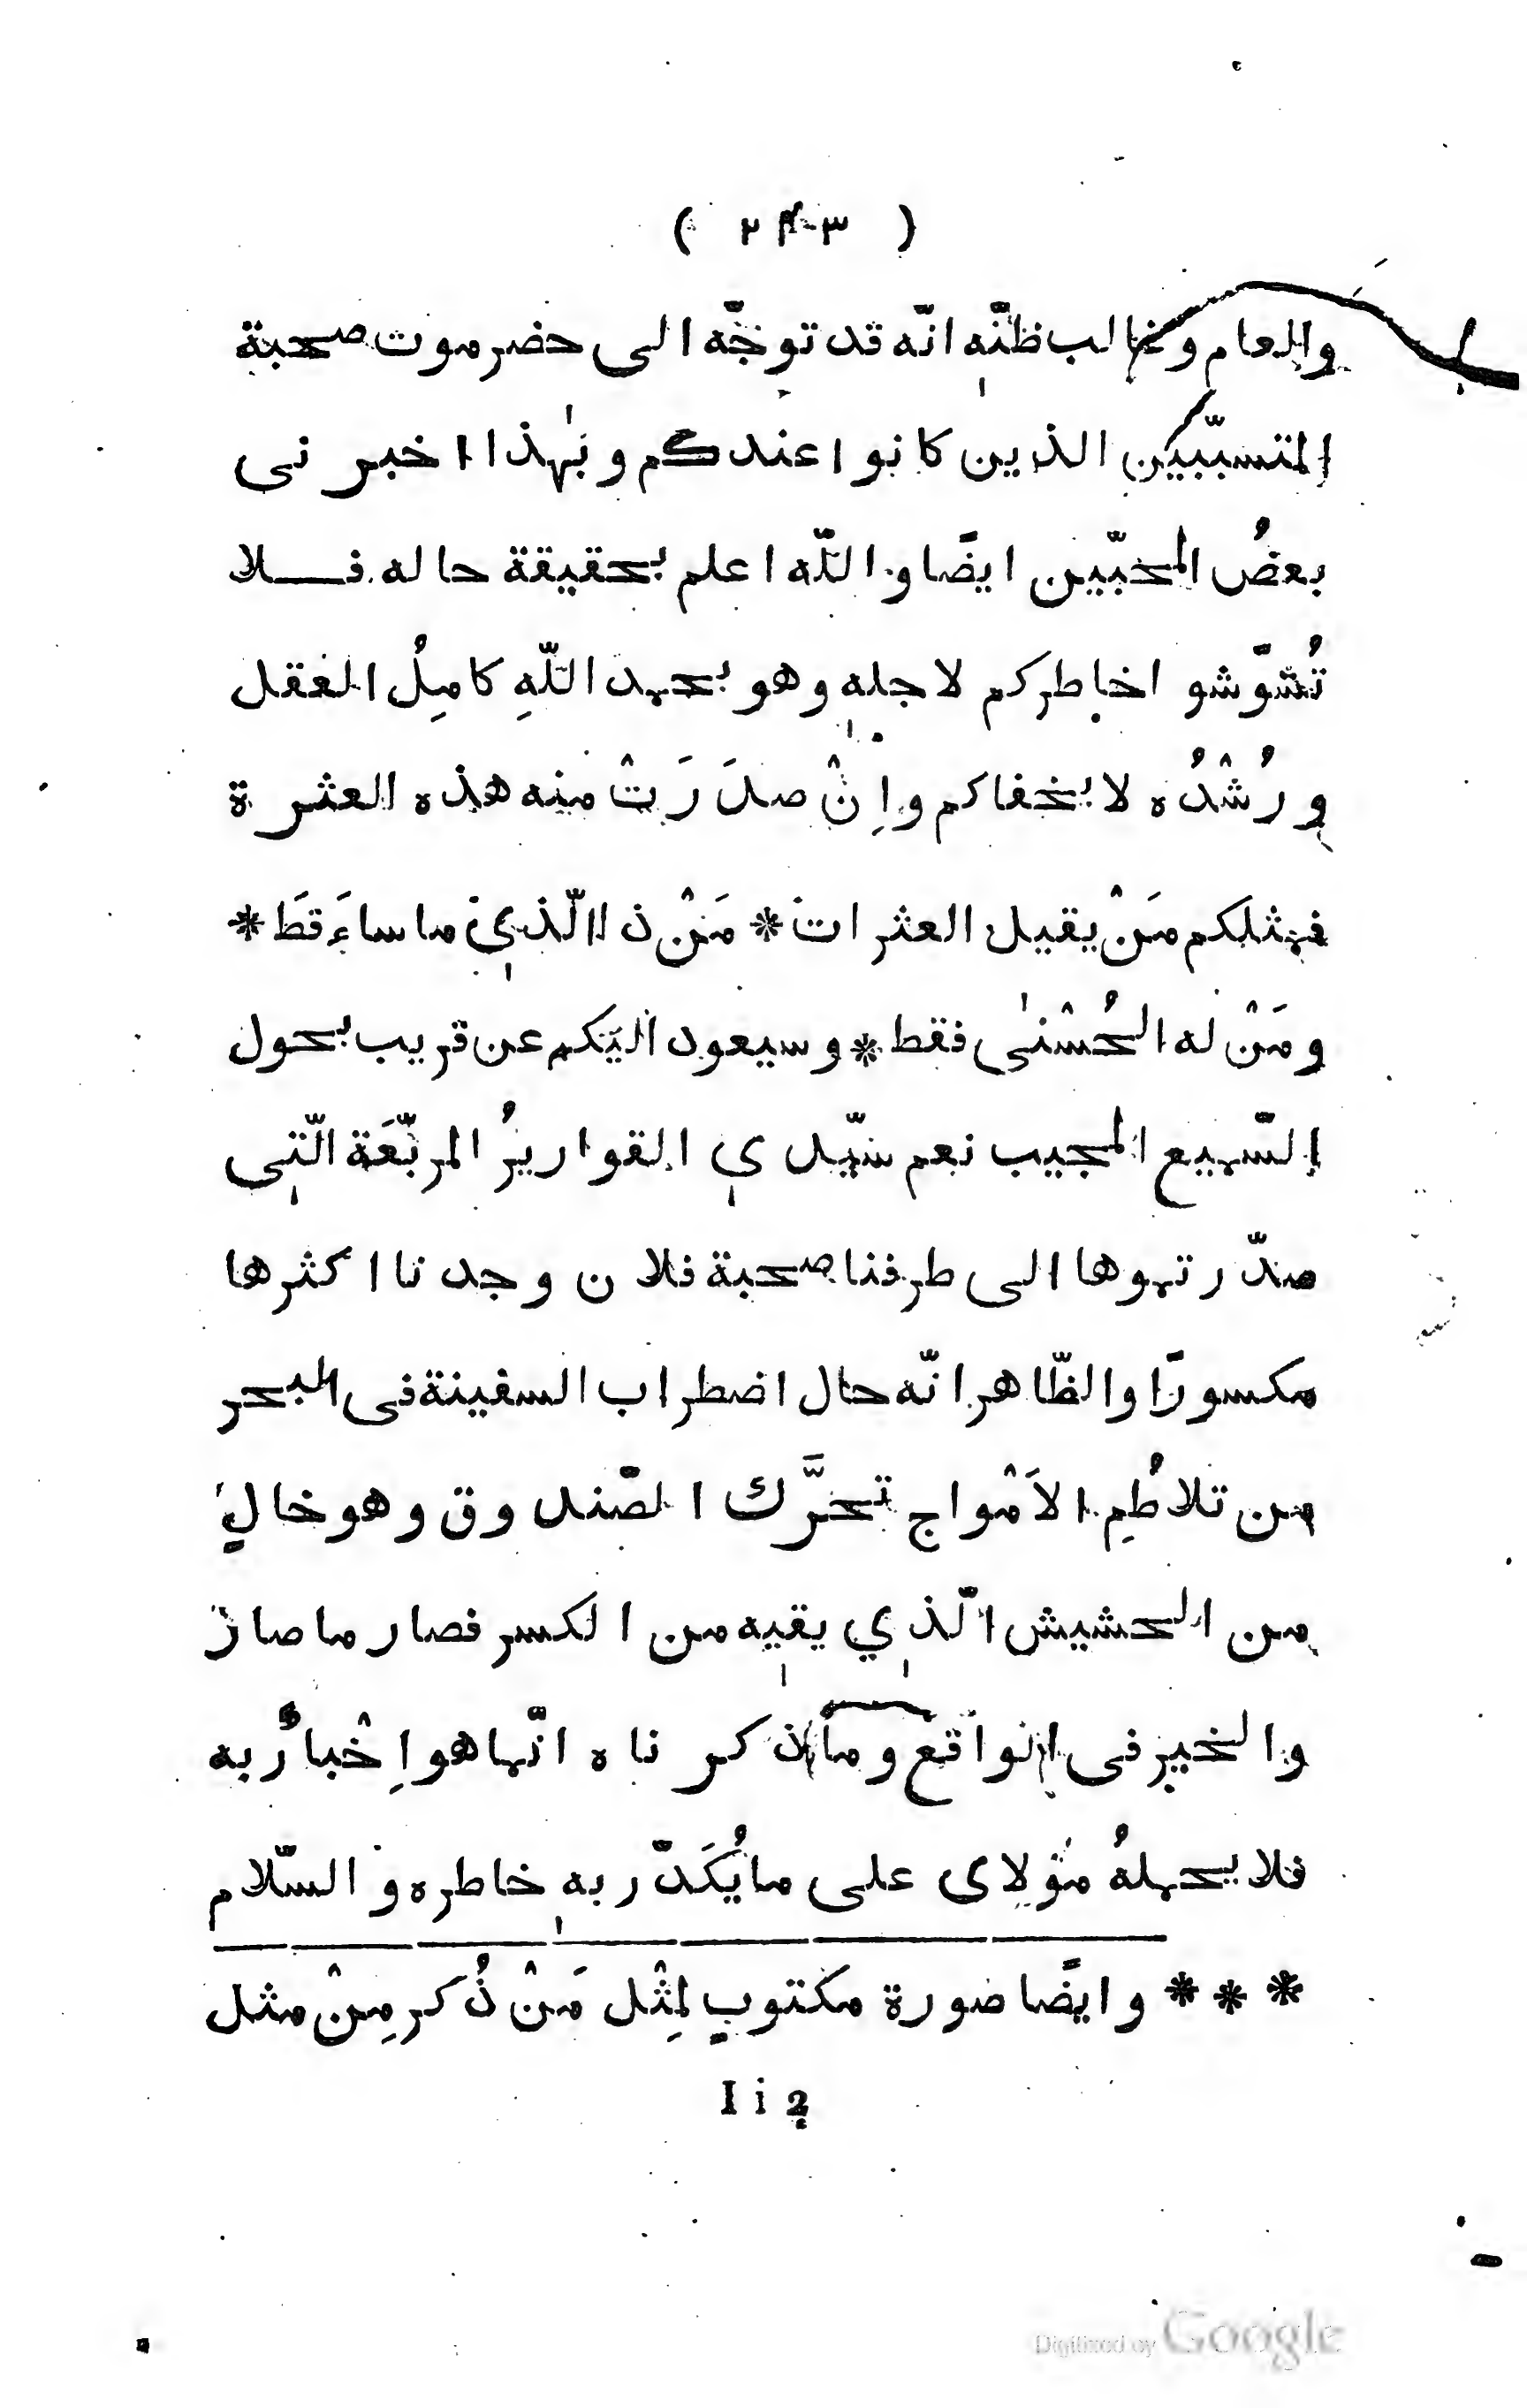 ( ٢۴٣ )
والعام وغالب ظنّه انّه قد توجّه الى حضرموت صحبة
المتسبّبين الذين كانوا عندكم وبهٰذا اخبرنى
بعضُ المحبّين ايضًا واللّه اعلم بحقيقة حاله فلا
تُشوّشوا خاطركم لاجله وهو بحمد اللّهِ كامِلُ العقل
ورُشْدُه لا يخفاكم واِنْ صدَرَتْ منه هذه العثرة
فمثلكم مَنْ يقيل العثرات * مَنْ ذا الّذي ما ساءَ قطّ *
ومَنْ له الحُسْنىٰ فقط * وسيعود اليكم عن قريب بحول
السّميع المجيب نعم سيّدي القواريرُ المربّعَة الّتى
صدّرتموها الى طرفنا صحبة فلان وجدنا اكثرها
مكسورًا والظّاهر انّه حال اضطراب السفينة فى البحر
من تلاطُمِ الاَمْواج تحرَّك الصّندوق وهو خالٍ
من الحشيش الّذي يقيه من الكسر فصار ما صار
والخير فى الواقع وما ذكرناه انّما هو اِخْبارٌ به
فلا يحملهُ مَوْلاى على ما يُكَدّر به خاطره والسّلام
* * * وايضًا صورة مكتوبٍ لِمِثْل مَنْ ذُكر مِنْ مثل
I i 2
Digitized by Google